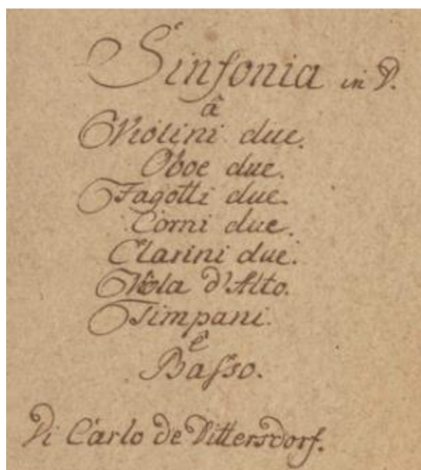 Sinfonia in D.
â
Violini due.
Oboe due.
Fagotti due.
Corni due.
Clarini due.
Viola d'Alto.
Timpani.
è
Basso.
Di Carlo de Dittersdorf.